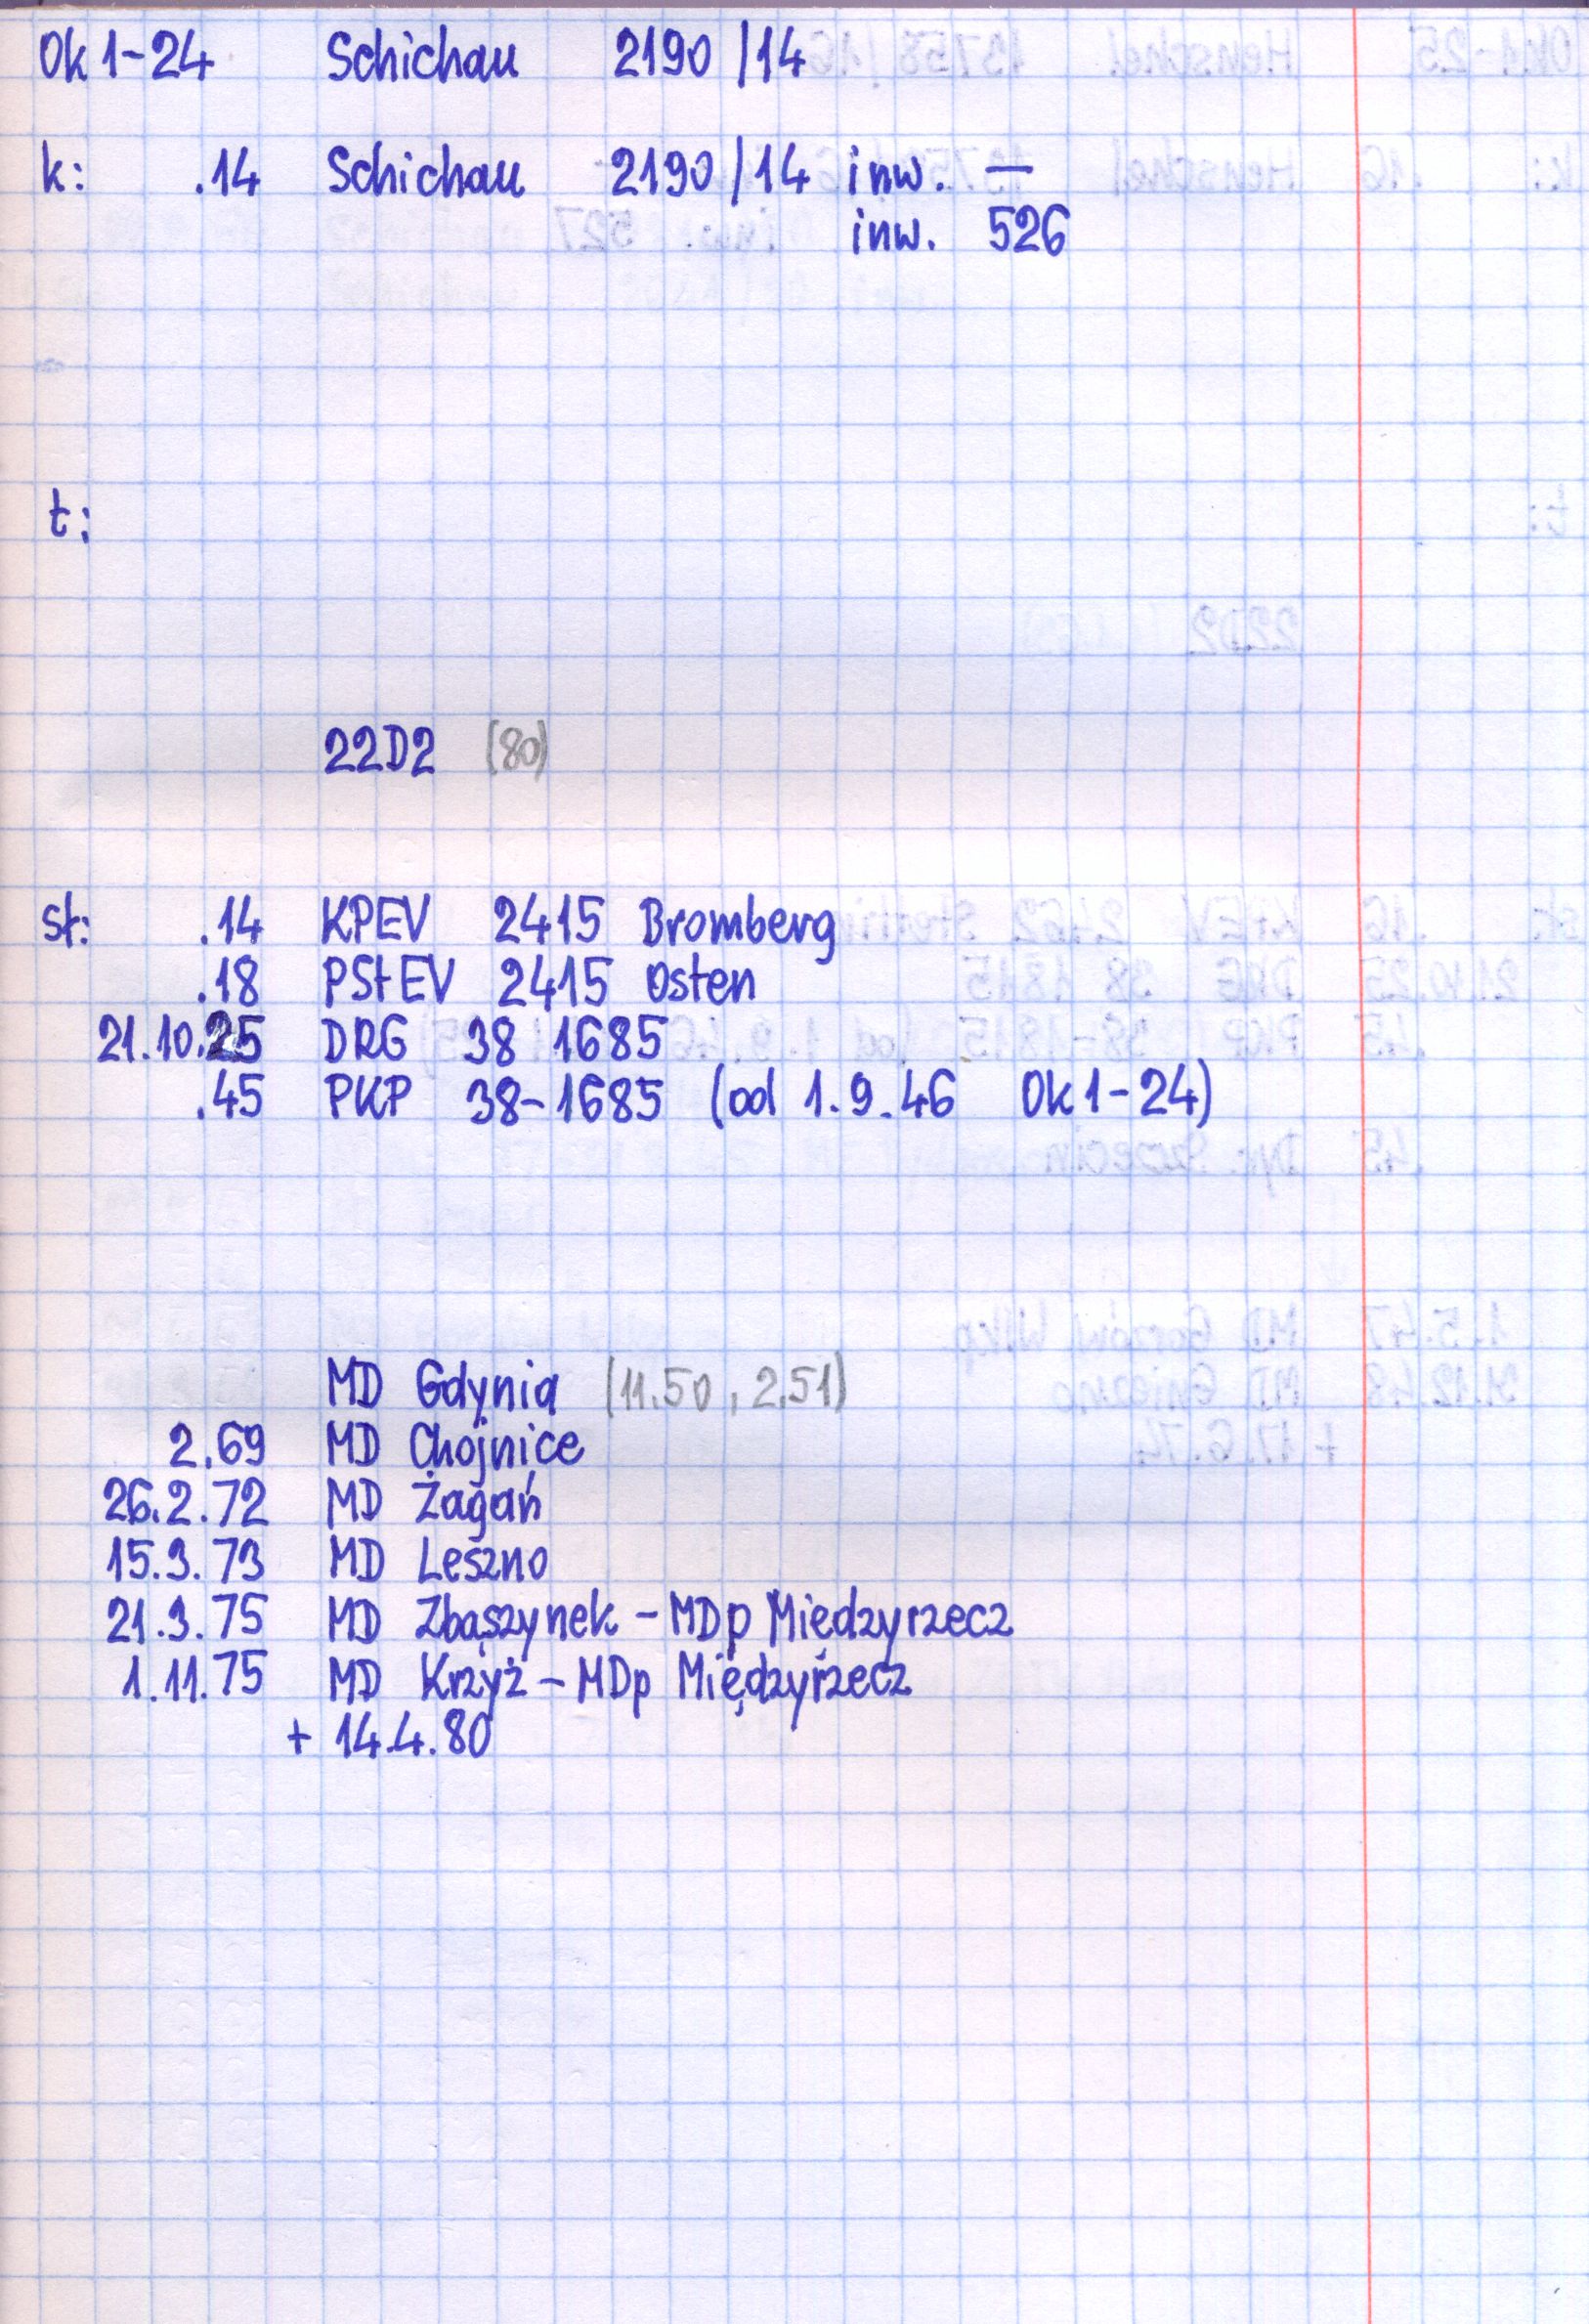 Ok1-24 Schichau 2190/14
k: .14 Schichau 2190/14 inw. —
inw. 526
t:
22D2 (80)
st: .14 KPEV 2415 Bromberg
.18 PStEV 2415 Osten
21.10.25 DRG 38 1685
.45 PKP 38-1685 (od 1.9.46 Ok1-24)
MD Gdynia (11.50, 2.51)
2.69 MD Chojnice
26.2.72 MD Żagań
15.3.73 MD Leszno
21.3.75 MD Zbąszynek - MDp Międzyrzecz
1.11.75 MD Krzyż - MDp Międzyrzecz
+ 14.4.80